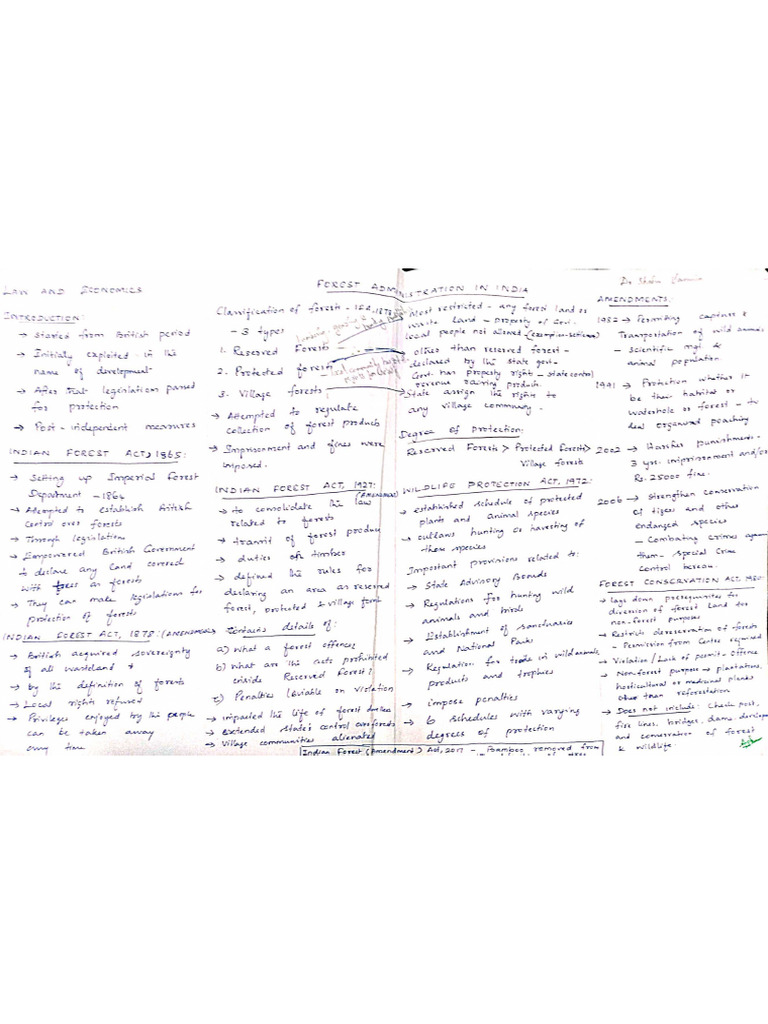 LAW AND ECONOMICS
FOREST ADMINISTRATION IN INDIA
INTRODUCTION:
→ Started from British period
→ Initially exploited in the
name of development
→ After that legislation passed
for protection
→ Post-independent measures
INDIAN FOREST ACT, 1865:
→ Setting up Imperial Forest
Department - 1864
→ Attempted to establish British
control over forests
→ Through legislations
→ Empowered British Government
to declare any land covered
with trees as forests
→ They can make legislations for
protection of forests
INDIAN FOREST ACT, 1878: (AMENDMENT)
→ British acquired sovereignty
of all wasteland
→ by the definition of forests
→ Local rights refused
→ Privileges enjoyed by the people
can be taken away
any time
Classification of forests - IFA, 1878
- 3 types
1. Reserved Forests
2. Protected forests
3. Village forests
→ Attempted to regulate
collection of forest products
→ Imprisonment and fines were
imposed.
INDIAN FOREST ACT, 1927: (AMENDMENT)
→ to consolidate the law
related to forests
→ transit of forest produce
→ duties on timber
→ defined the rules for
declaring an area as reserved
forest, protected & village forest
→ Contains details of:
a) What a forest offence
b) What are the acts prohibited
inside Reserved Forest?
c) Penalties leviable on violation
→ impacted the life of forest dwellers
→ extended State's control over forests
→ Village communities alienated
Most restricted - any forest land or
waste land - property of Govt.
local people not allowed - (exemption-settlement)
other than reserved forest -
declared by the State govt.
Govt. has property rights - state control
revenue raising products.
State assign the rights to
any village community.
Degree of Protection:
Reserved Forests > Protected forests >
Village forests
WILDLIFE PROTECTION ACT, 1972:
→ established schedule of protected
plants and animal species
→ outlaws hunting or harvesting of
these species
Important provisions related to:
→ State Advisory Boards
→ Regulations for hunting wild
animals and birds
→ Establishment of sanctuaries
and National Parks
→ Regulation for trade in wild animals,
products and trophies
→ impose penalties
→ 6 schedules with varying
degrees of protection
Indian Forest (Amendment) Act, 2017 - Bamboo removed from
AMENDMENTS:
1982 → Permitting capture &
Transportation of wild animals
- scientific mgt &
animal population
1991 → Protection whether it
be their habitat or
waterhole or forest - to
deal organised poaching
2002 → Harsher punishments -
3 yrs imprisonment and/or
Rs. 25000 fine.
2006 → Strengthen conservation
of tigers and other
endangered species
- Combating crimes against
them - Special Crime
control bureau.
FOREST CONSERVATION ACT, 1980:
→ lays down prerequisites for
diversion of forest land for
non-forest purposes
→ Restricts dereservation of forests
- Permission from Centre required
→ Violation / Lack of permit - offence
→ Nonforest purpose → plantations,
horticultural or medicinal plants
other than reforestation
→ Does not include: Check post,
fire lines, bridges, dams,
and conservation of forest
& wildlife.